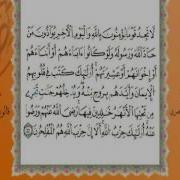 لَّا تَجِدُ قَوْمًا يُؤْمِنُونَ بِٱللَّهِ وَٱلْيَوْمِ ٱلْـَٔاخِرِ يُوَآدُّونَ مَنْ
حَآدَّ ٱللَّهَ وَرَسُولَهُۥ وَلَوْ كَانُوٓا۟ ءَابَآءَهُمْ أَوْ أَبْنَآءَهُمْ
أَوْ إِخْوَٰنَهُمْ أَوْ عَشِيرَتَهُمْ أُو۟لَٰٓئِكَ كَتَبَ فِى قُلُوبِهِمُ
ٱلْإِيمَٰنَ وَأَيَّدَهُم بِرُوحٍ مِّنْهُ وَيُدْخِلُهُمْ جَنَّٰتٍ تَجْرِى
مِن تَحْتِهَا ٱلْأَنْهَٰرُ خَٰلِدِينَ فِيهَا رَضِىَ ٱللَّهُ عَنْهُمْ وَرَضُوا۟
عَنْهُ أُو۟لَٰٓئِكَ حِزْبُ ٱللَّهِ أَلَآ إِنَّ حِزْبَ ٱللَّهِ هُمُ ٱلْمُفْلِحُونَ